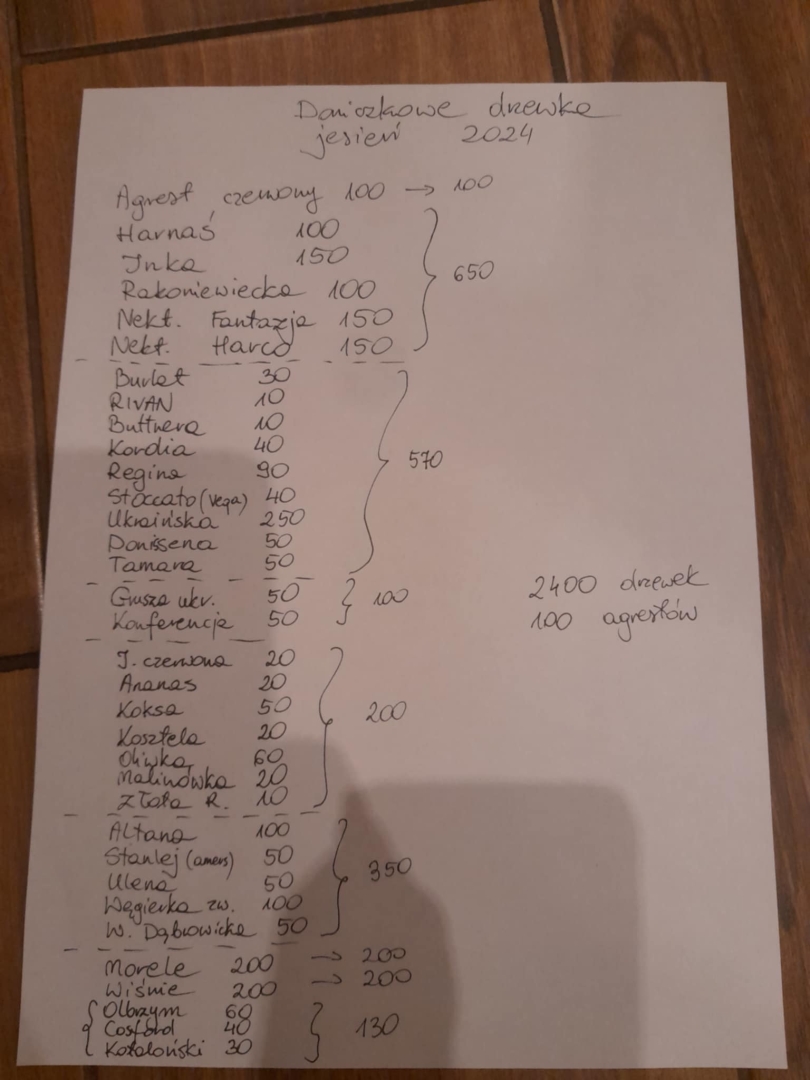 Doniczkowe drzewka
jesień 2024
Agrest czerwony 100 → 100
Harnaś 100
Inka 150
Rakoniewiecka 100
650
Nekt. Fantazja 150
Nekt. Harco 150
Burlat 30
RIVAN 10
Buttnera 10
Kordia 40
570
Regina 90
Stoccato (Vega) 40
Ukraińska 250
Donissena 50
Tamara 50
Grusza ukr. 50
100
Konferencja 50
2400 drzewek
100 agrestów
J. czerwona 20
Ananas 20
Koksa 50
200
Kosztela 20
Oliwka 60
Malinówka 20
Złota R. 10
Altana 100
Stanlej (amers) 50
350
Ulena 50
Węgierka zw. 100
W. Dąbrowicka 50
Morele 200 → 200
Wiśnie 200 → 200
Olbrzym 60
Cosford 40
130
Kataloński 30